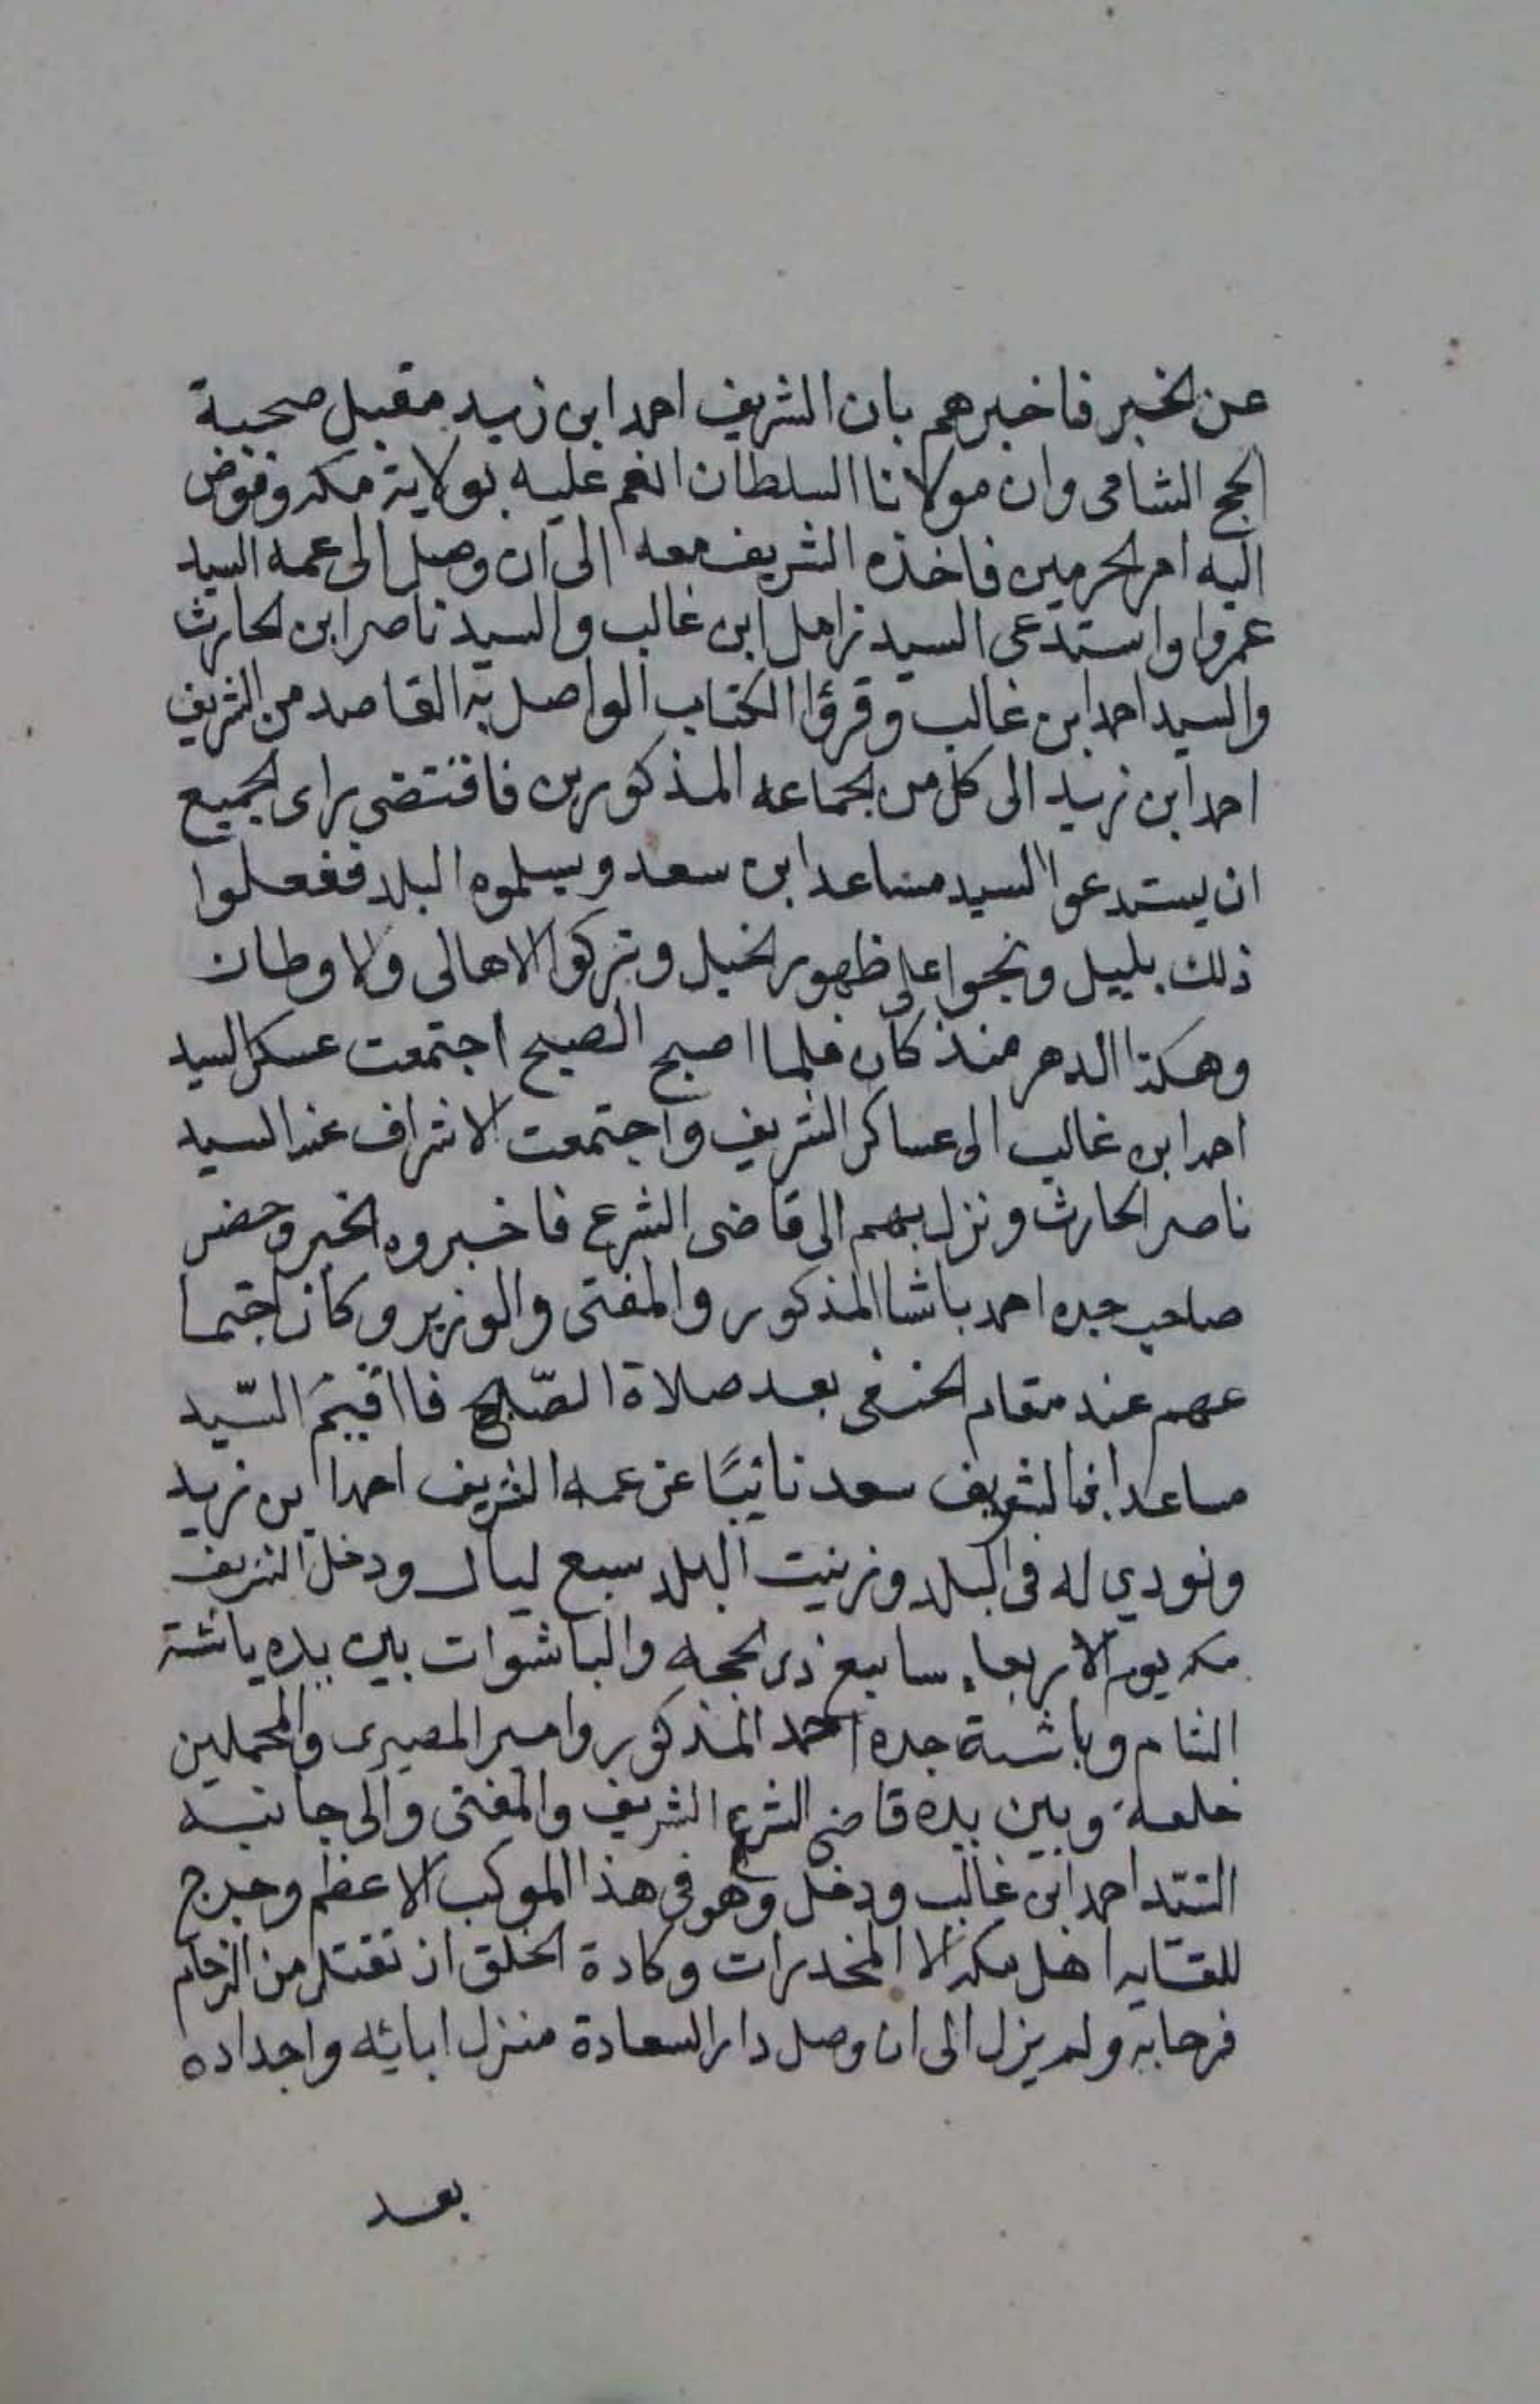 عن الخبر فاخبرهم بان الشريف احمد ابن زيد مقبل صحبة
الحج الشامى وان مولانا السلطان انعم عليه بولاية مكه وفوض
اليه امر الحرمين فاخذه الشريف معه الى ان وصل الى عمه السيد
عمروا واستدعى السيد زامل ابن غالب والسيد ناصر ابن الحارث
والسيد احمد ابن غالب وقرؤا الكتاب الواصل به القاصد من الشريف
احمد ابن زيد الى كل من الجماعه المذكورين فاقتضى راى الجميع
ان يستدعوا السيد مساعد ابن سعد ويسلموه البلد ففعلوا
ذلك بليل ونجوا على ظهور الخيل وتركوا الاهالى ولاوطان
وهكذا الدهر منذ كان فلما اصبح الصبح اجتمعت عسكر السيد
احمد ابن غالب الى عساكر الشريف واجتمعت الاشراف عند السيد
ناصر الحارث ونزل بهم الى قاضى الشرع فاخبروه الخبر وحضر
صاحب جده احمد باشا المذكور والمفتى والوزير وكان اجتما
عهم عند مقام الحنفى بعد صلاة الصّبح فااقيمَ السّيد
مساعد ابن الشريف سعد نائبًا عن عمه الشريف احمد ابن زيد
ونودي له فى البلد وزينت البلد سبع ليال ودخل الشريف
مكه يوم الاربعاء سابع ذى الحجه والباشوات بين يده ياشة
الشام وباشة جده احمد المذكور وامير المصيرى والمحملين
خلعه وبين يده قاضى الشرع الشريف والمفتى والى جانبه
السّيد احمد ابن غالب ودخل وهو فى هذا الموكب الاعظم وخرج
للقايه اهل مكه الا المخدرات وكادة الخلق ان تقتل من الزحام
فرحابه ولم يزل الى ان وصل دار السعادة منزل ابائه واجداده
بعد